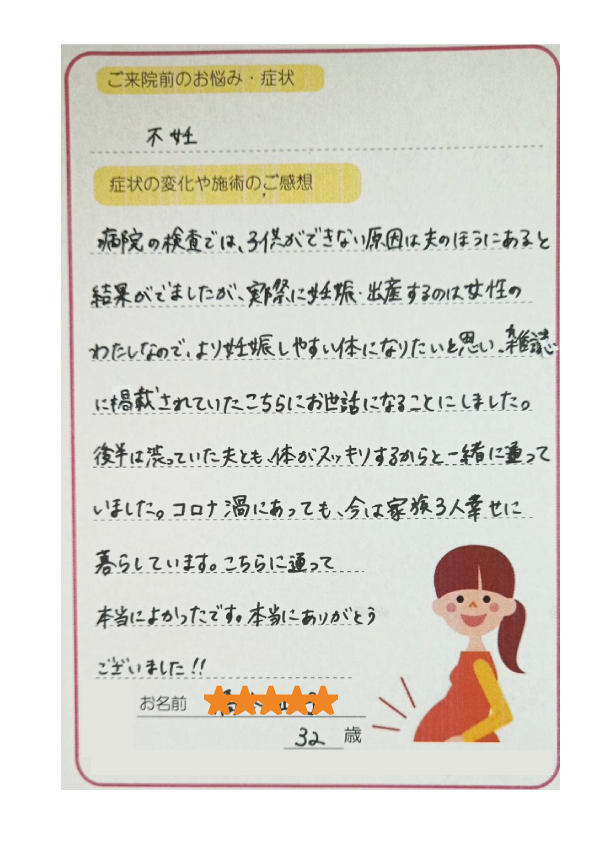 ご来院前のお悩み・症状
不妊
症状の変化や施術のご感想
病院の検査では、子供ができない原因は夫のほうにあると
結果がでましたが、実際に妊娠・出産するのは女性の
わたしなので、より妊娠しやすい体になりたいと思い、雑誌
に掲載されていたこちらにお世話になることにしました。
後半は渋っていた夫とも、体がスッキリするからと一緒に通って
いました。コロナ渦にあっても、今は家族3人幸せに
暮らしています。こちらに通って
本当によかったです。本当にありがとう
ございました!!
お名前
32 歳